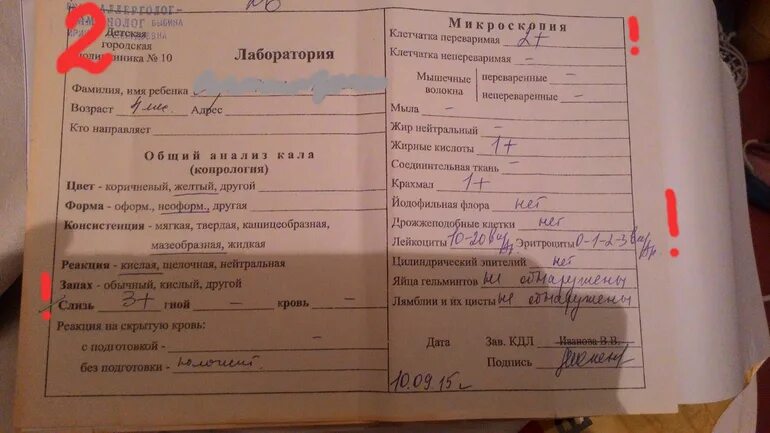 2
АЛЛЕРГОЛОГ-
ИММУНОЛОГ БЫБИНА
Детская
городская
поликлиника № 10
Лаборатория
Фамилия, имя ребенка
Возраст 4 мес. Адрес
Кто направляет
Общий анализ кала
(копрология)
Цвет - коричневый, желтый, другой
Форма - оформ., неоформ., другая
Консистенция - мягкая, твердая, кашицеобразная,
мазеобразная, жидкая
Реакция - кислая, щелочная, нейтральная
Запах - обычный, кислый, другой
! Слизь 3+ гной – кровь –
Реакция на скрытую кровь:
с подготовкой - –
без подготовки - положит.
Микроскопия
Клетчатка переваримая 2+ !
Клетчатка непереваримая –
Мышечные волокна
переваренные –
непереваренные –
Мыла –
Жир нейтральный –
Жирные кислоты 1+
Соединительная ткань –
Крахмал 1+
Йодофильная флора нет
Дрожжеподобные клетки нет
Лейкоциты 10-20 в п/зр Эритроциты 0-1-2-3 в п/зр. !
Цилиндрический эпителий нет
Яйца гельминтов не обнаружены
Лямблии и их цисты не обнаружены
Дата Зав. КДЛ Иванова В.В.
Подпись
10.09.15г